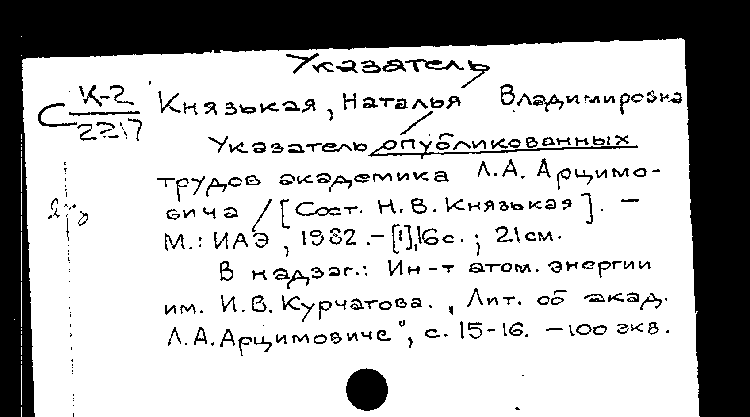 Указатель
С К-2
2217
Князькая, Наталья Владимировна
Указатель опубликованных
трудов академика Л.А. Арцимо-
вича / [Сост. Н.В. Князькая]. —
М.: ИАЭ, 1982. — [1], 16 с. ; 21 см.
В надзаг.: Ин-т атом. энергии
им. И.В. Курчатова. „Лит. об акад.
Л.А. Арцимовиче", с. 15-16. — 100 экз.